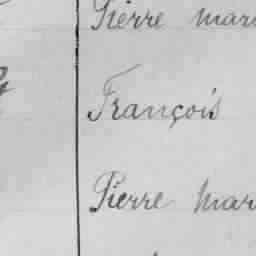 Pierre mar
François
Pierre mar